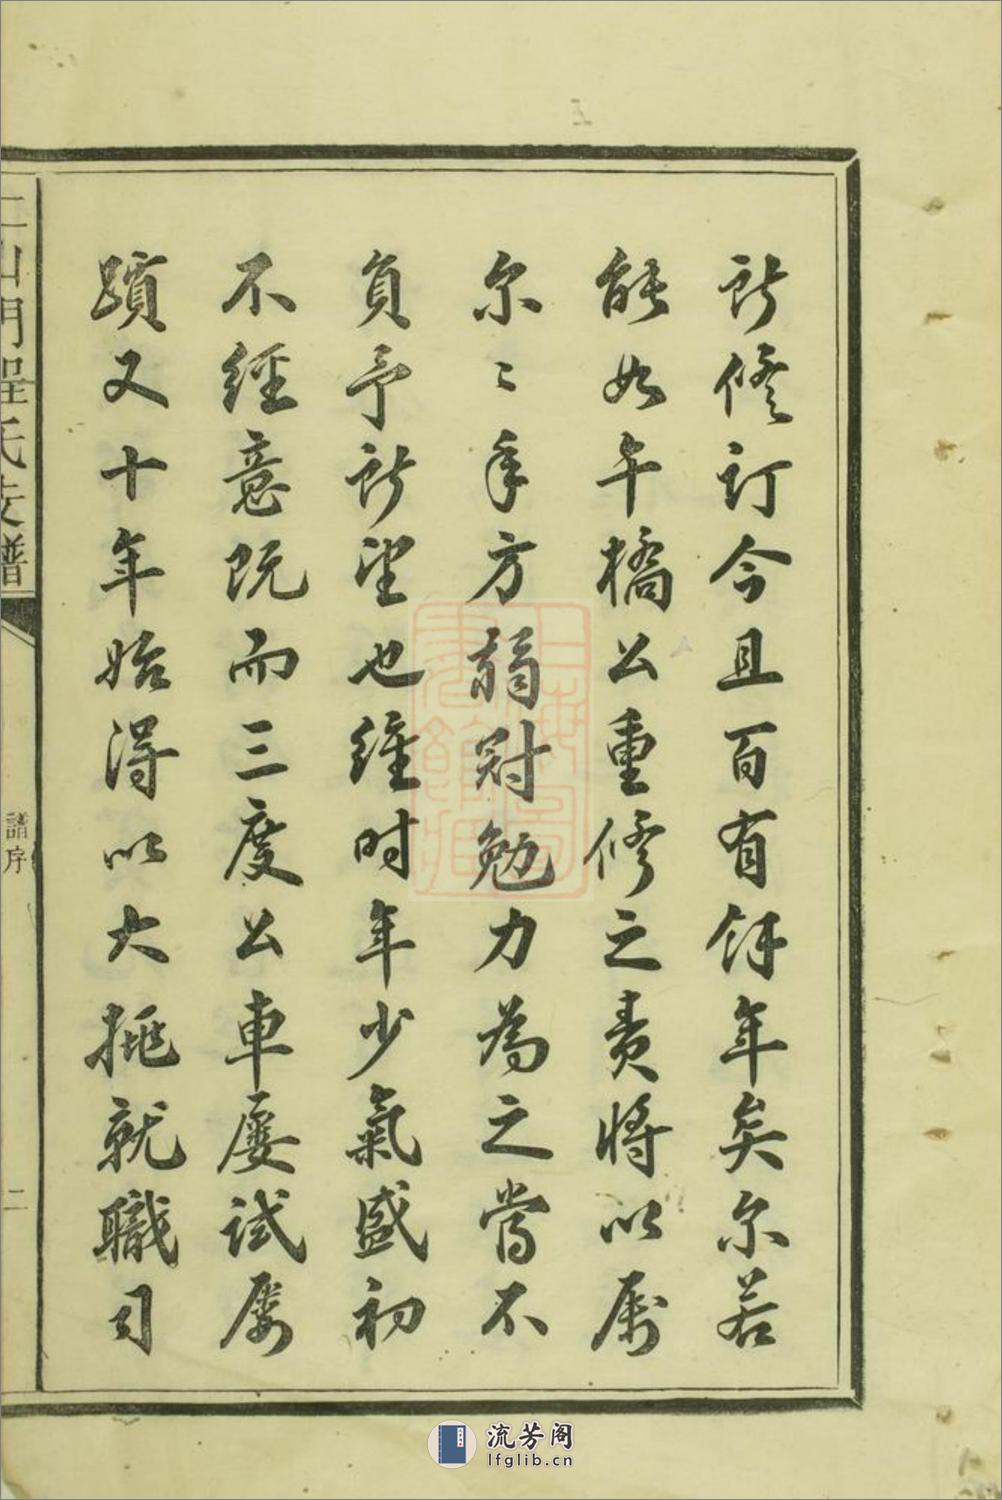 所修訂今且百有餘年矣尔若
能如午橋公重修之責將以属
尔〻年方弱冠勉力為之當不
負予所望也維时年少氣盛初
不經意既而三度公車屡試屡
躓又十年始得以大挑就職司
仁山門程氏支譜
譜序
二
流芳阁
lfglib.cn